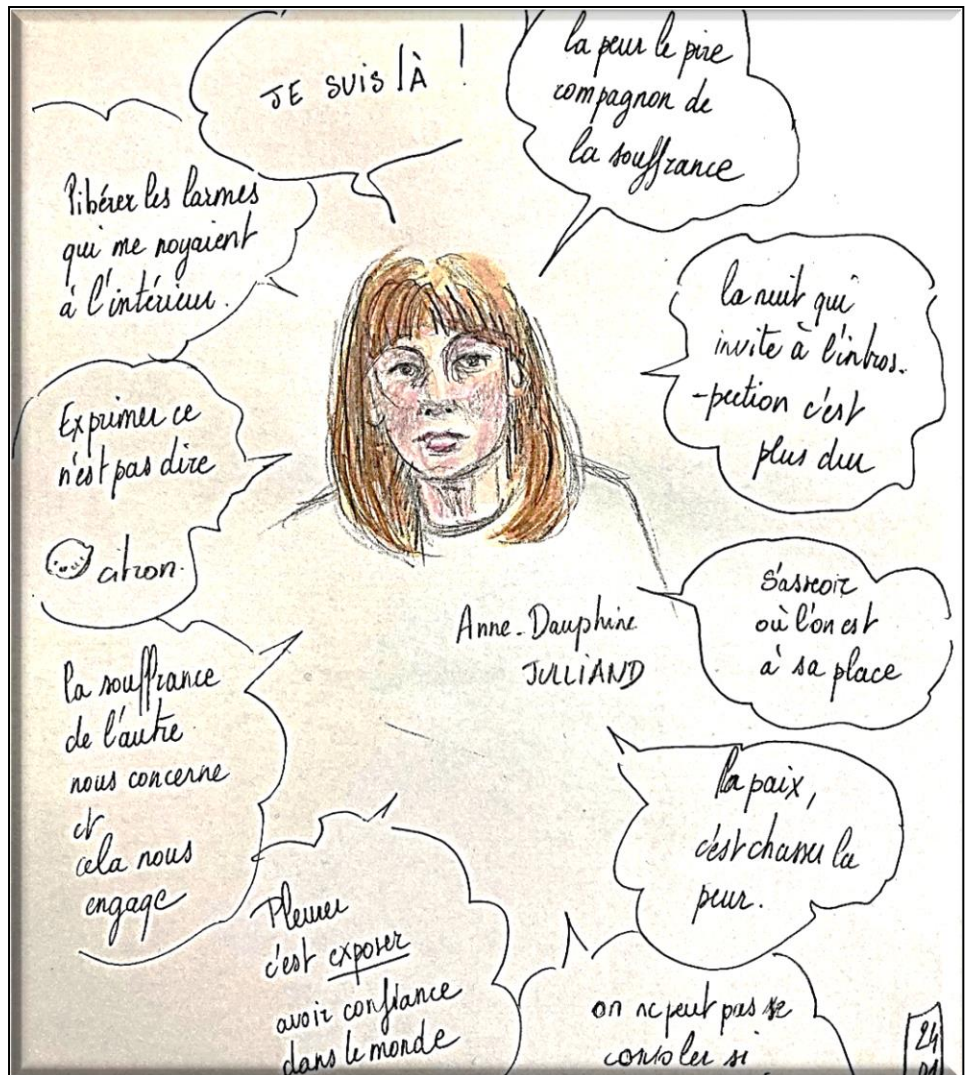 JE SUIS LÀ !
la peur le pire
compagnon de
la souffrance
libérer les larmes
qui me noyaient
à l'intérieur.
la nuit qui
invite à l'intros-
-pection c'est
plus dur
Exprimer ce
n'est pas dire
citron.
S'asseoir
où l'on est
à sa place
Anne-Dauphine
JULLIAND
la souffrance
de l'autre
nous concerne
et
cela nous
engage
la paix,
c'est chasser la
peur.
Pleurer
c'est exposer
avoir confiance
dans le monde
on ne peut pas se
consoler si
24